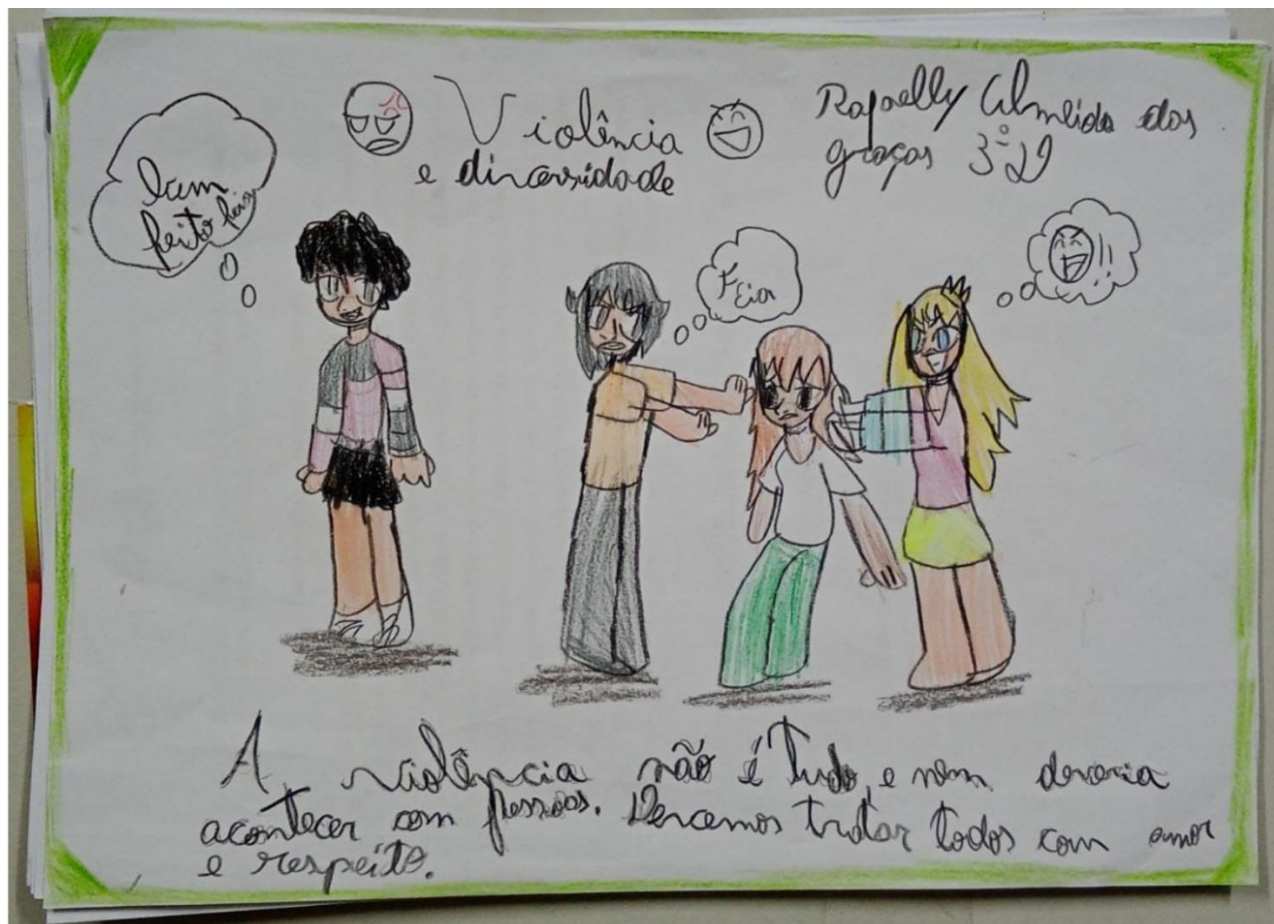 Violência
e diversidade
Rafaelly Almeida das
graças 3º 29
bem
feito feia
Feia
!!
A violência não é tudo, e nem deveria
acontecer com pessoas. Devemos tratar todos com amor
e respeito.